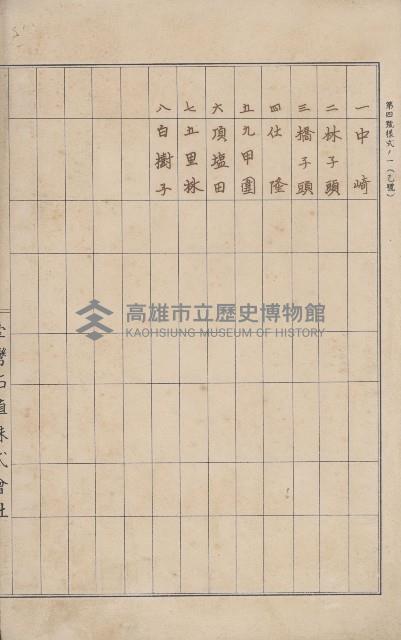 第四號樣式ノ一(乙號)
一 中崎
二 林子頭
三 橋子頭
四 仕隆
五 九甲圍
六 頂塩田
七 五里林
八 白樹子
臺灣拓殖株式會社
高雄市立歷史博物館
KAOHSIUNG MUSEUM OF HISTORY